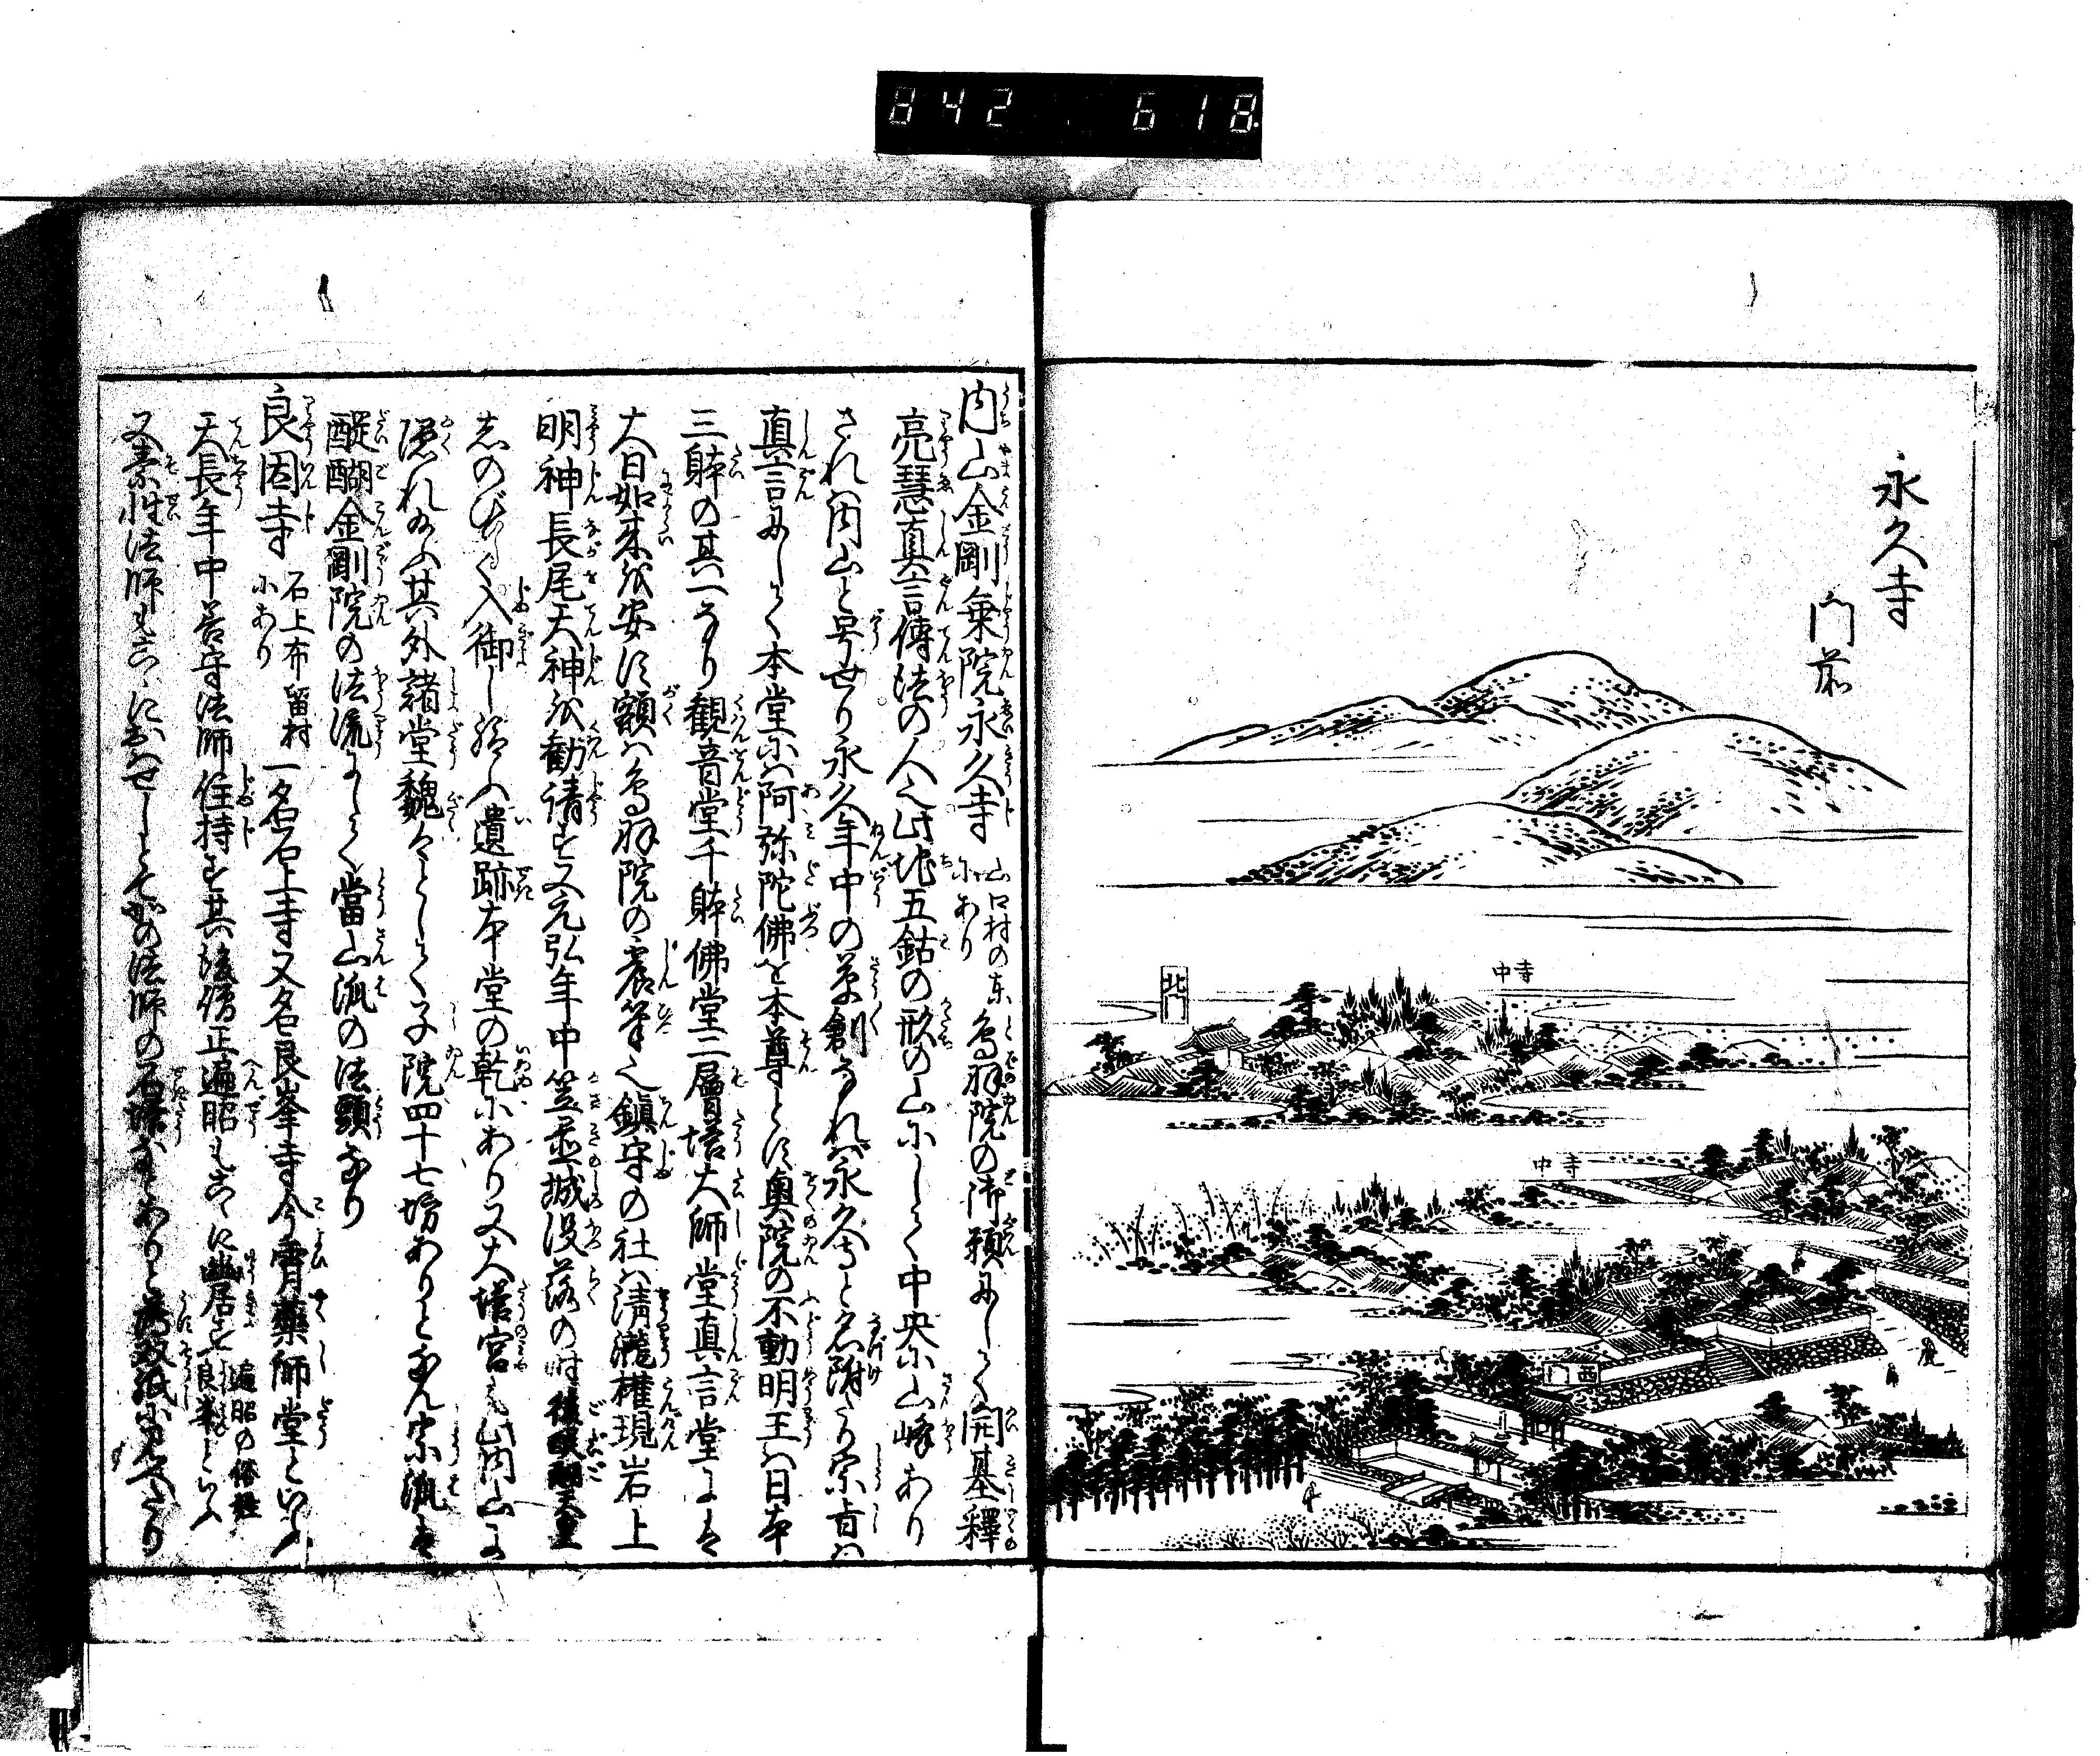 842 618
永久寺
門前
北門
中寺
中寺
西門
内山金剛乗院永久寺 山口村の東にあり 鳥羽院の御願にして開基釋
亮慧真言傳法の人也此地五鈷の形の山にして中央に山峰あり
されは内山と号せり永久年中の草創なれは永久寺と名附たり宗旨は
真言にして本堂には阿弥陀佛を本尊とす奥院の不動明王は日本
三躰の其一なり觀音堂千躰佛堂二層塔大師堂真言堂には
大日如来を安す額は鳥羽院の宸筆也鎮守の社は清瀧權現岩上
明神長尾天神を勧請す又元弘年中笠置城没落の時後醍醐天皇
しのびて入御し給ふ遺跡本堂の乾にあり又大塔宮も此内山に
隠れ給ふ其外諸堂魏々として子院四十七坊ありとなん宗流は
醍醐金剛院の法流にして當山流の法頭なり
良因寺 石上布留村にあり 一名石上寺又名良峯寺今宵月藥師堂といふ
天長年中善守法師住持す其後僧正遍昭もこゝに幽居す 遍昭の俗姓良峯といふ
又素性法師もこゝにおはせしとぞ此法師の石塔にありと見えたり